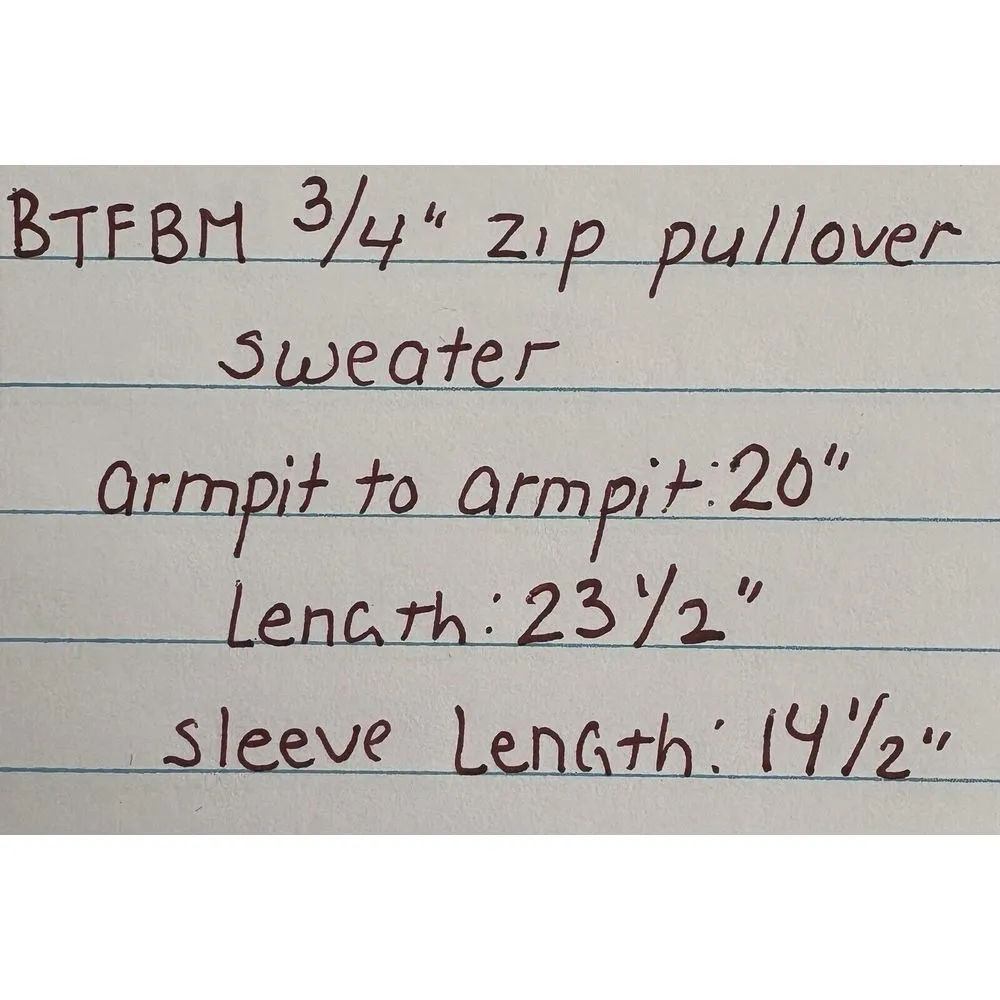 BTFBM 3/4" zip pullover
sweater
armpit to armpit: 20"
Length: 23 1/2"
sleeve Length: 14 1/2"